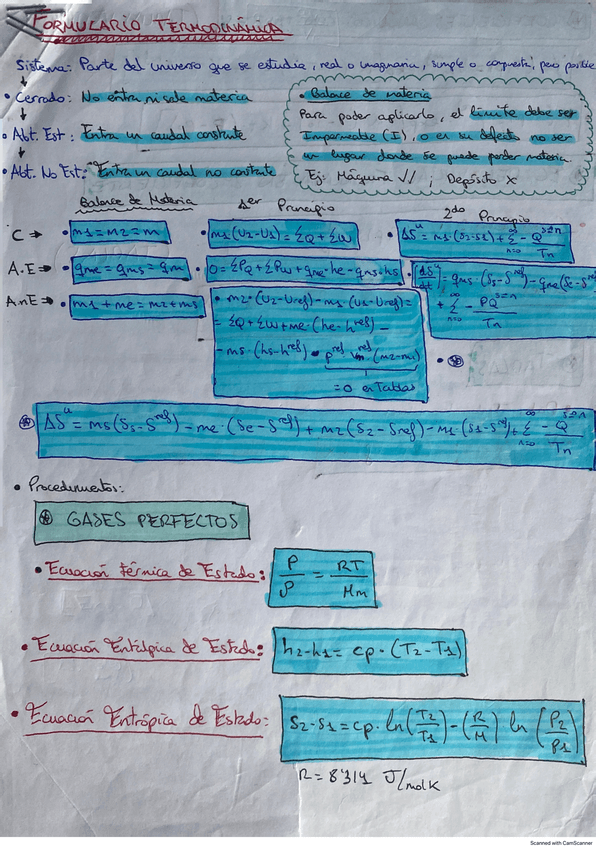 FORMULARIO TERMODINÁMICA
Sistema: Parte del universo que se estudia, real o imaginaria, simple o compuesta, pero posible
↓
• Cerrado: No entra ni sale materia
↓
• Abt. Est: Entra un caudal constante
↓
• Abt. No Est: Entra un caudal no constante
• Balance de materia
Para poder aplicarlo, el límite debe ser
Impermeable (I), o en su defecto no ser
un lugar donde se puede perder materia.
Ej: Máquina √/ ; Depósito X
Balance de Materia 1er Principio 2do Principio
C → • m1 = m2 = m • m1(U2-U1) = ΣQ + ΣW • ΔS^u = m1(s2-s1) + Σ^∞_{n=0} - Q^{s→n}/Tn
A.E → • qme = qms = qm • 0 = ΣPQ + ΣPW + qme·he - qms·hs • [dS^u/dt] = qms (Ss-S^ref) - qme(Se-S^ref)
+ Σ^∞_{n=0} - PQ^{s→n}/Tn
AnE → • m1 + me = m2 + ms • m2·(U2-Uref) - m1·(U1-Uref) =
= ΣQ + ΣW + me·(he-h^ref) -
- ms·(hs-h^ref) • p^ref Vm^ref·(m2-m1)
=0 en Tablas
• ⊛
⊛ ΔS^u = ms(Ss-S^ref) - me·(Se-S^ref) + m2(S2-Sref) - m1·(S1-S^ref) + Σ^∞_{n=0} - Q^{s→n}/Tn
• Procedimientos:
⊛ GASES PERFECTOS
• Ecuación térmica de Estado: P/ρ = RT/Mm
• Ecuación Entálpica de Estado: h2-h1 = cp·(T2-T1)
• Ecuación Entrópica de Estado: S2-S1 = cp·ln(T2/T1) - (R/M) ln (P2/P1)
R = 8'314 J/molK
Scanned with CamScanner